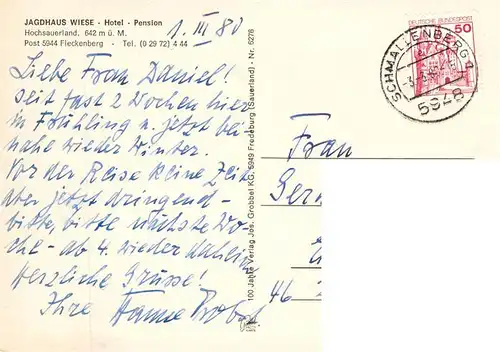 JAGDHAUS WIESE - Hotel - Pension
Hochsauerland. 642 m ü. M.
Post 5944 Fleckenberg - Tel. (0 29 72) 4 44
1. III 80
Liebe Frau Daniel!
seit fast 2 Wochen hier
im Frühling u. jetzt bei
nahe wieder Winter.
Vor der Reise keine Zeit
aber jetzt dringend -
bitte, bitte nächste Wo-
che - ab 4. wieder daheim
Herzliche Grüsse!
Ihre Hanne
100 Jahre Verlag Jos. Grobbel KG, 5949 Fredeburg (Sauerland) - Nr. 6276
DEUTSCHE BUNDESPOST
50
SCHMALLENBERG 1
5948
Frau
Ger
46